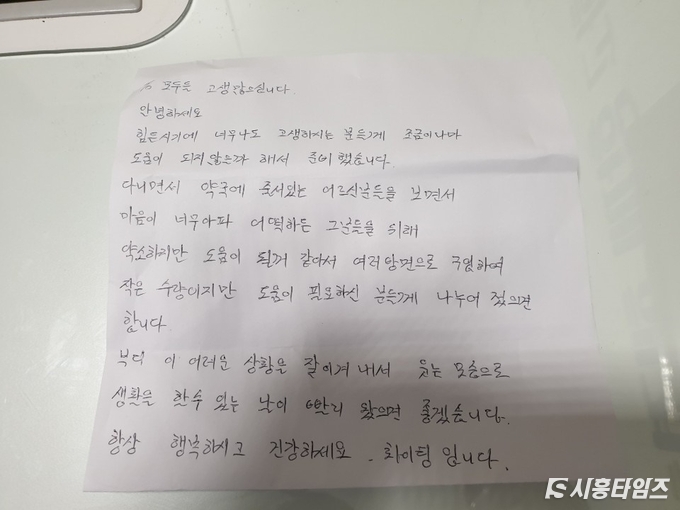 모두들 고생많으십니다.
안녕하세요
힘든시기에 너무나도 고생하시는 분들께 조금이나마
도움이 되지않을까 해서 준비했습니다.
다니면서 약국에 줄서있는 어르신분들을 보면서
마음이 너무아파 어떡하든 그분들을 위해
약소하지만 도움이 될꺼 같아서 여러방면으로 구입하여
작은 수량이지만 도움이 필요하신 분들께 나누어 줬으면
합니다.
부디 이 어려운 상황을 잘이겨내서 웃는 모습으로
생활을 할수 있는 날이 빨리 왔으면 좋겠습니다.
항상 행복하시고 건강하세요. 화이팅 입니다.
시흥타임즈